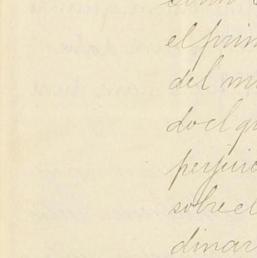 el prim
del m
do el qu
perjuici
sobre el
dinar